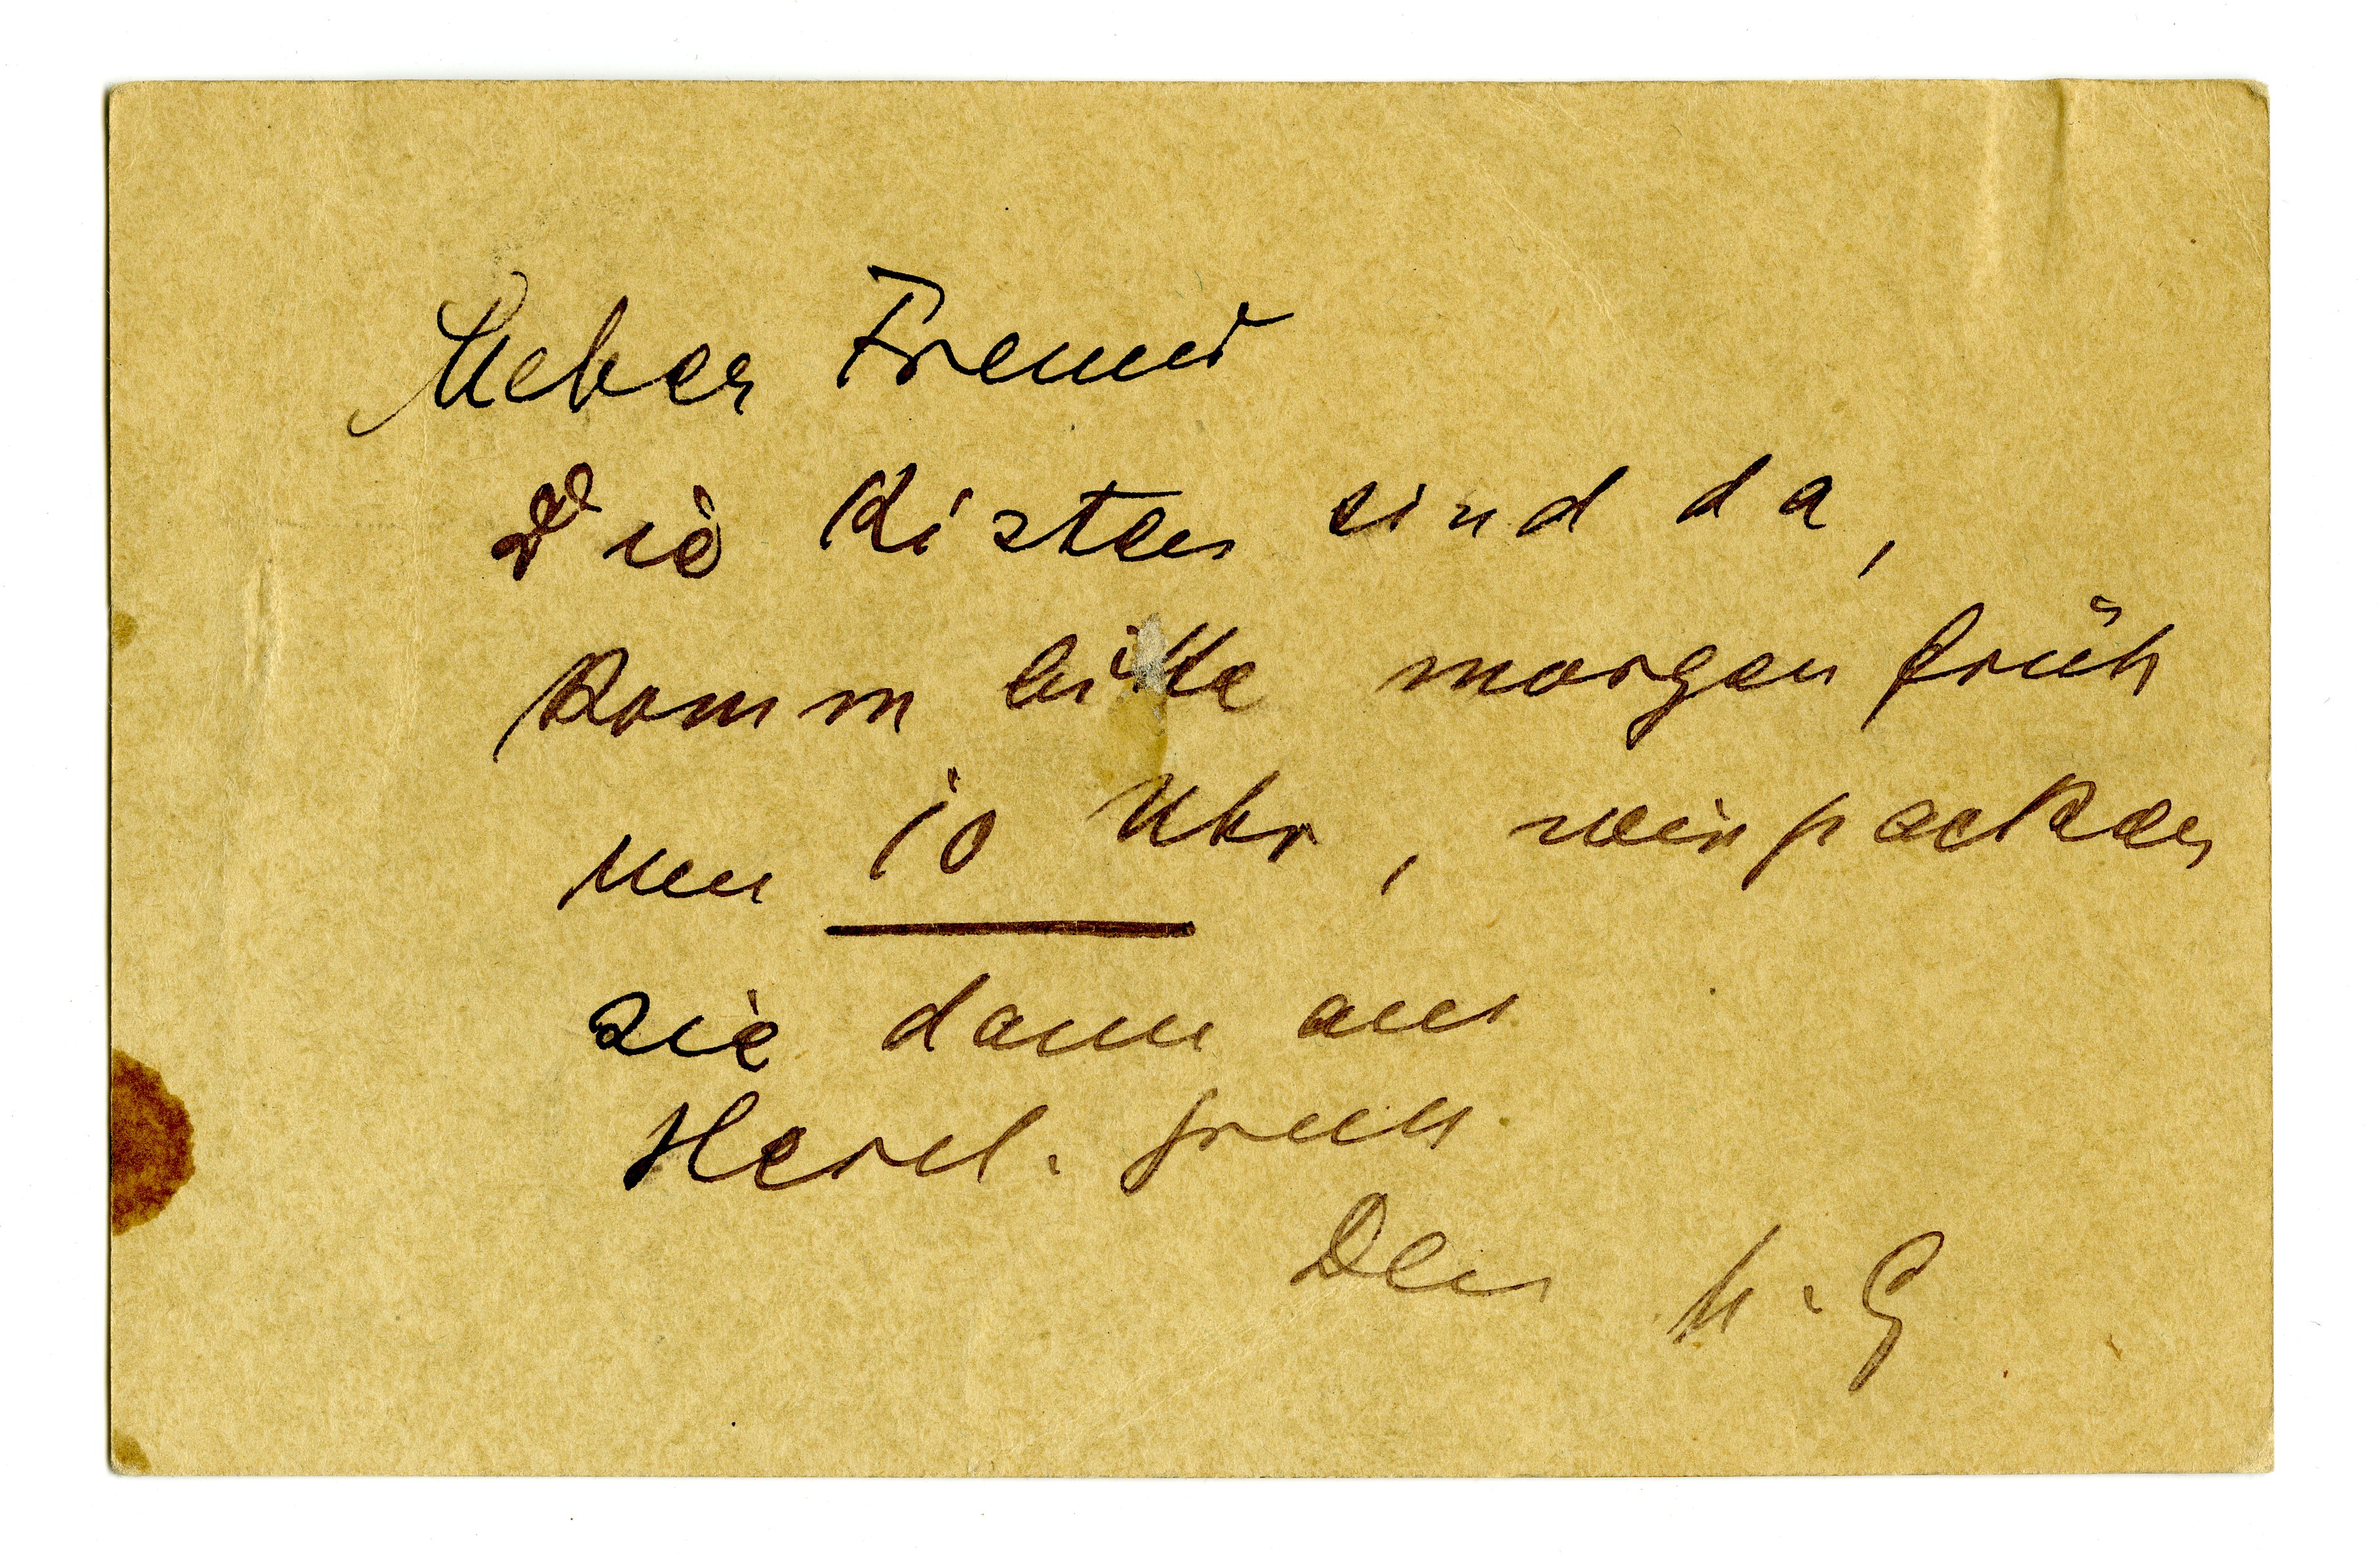 Lieber Freund
Die Kisten sind da,
Komm bitte morgen früh
um 10 Uhr, wir packen
sie dann aus
Herzl. Gruss
Dein